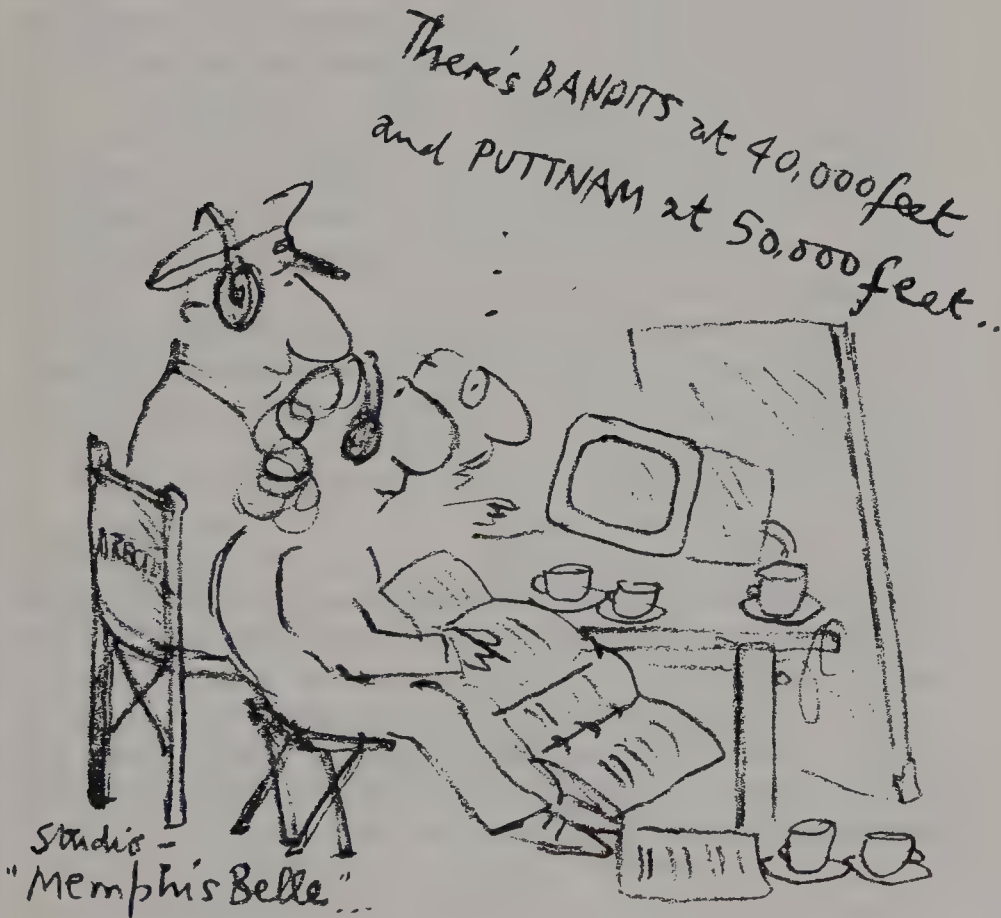 There's BANDITS at 40,000 feet
and PUTTNAM at 50,000 feet...
DIRECT
Studio -
"Memphis Belle"...